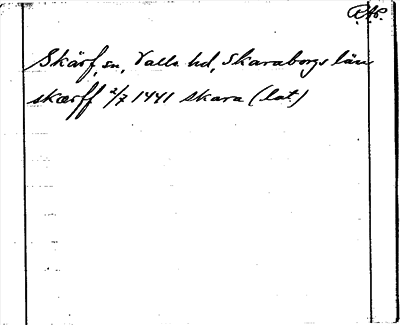 RAp.
Skärf, sn, Valle hd, Skaraborgs län
skærff 2/7 1441 skara (lat)